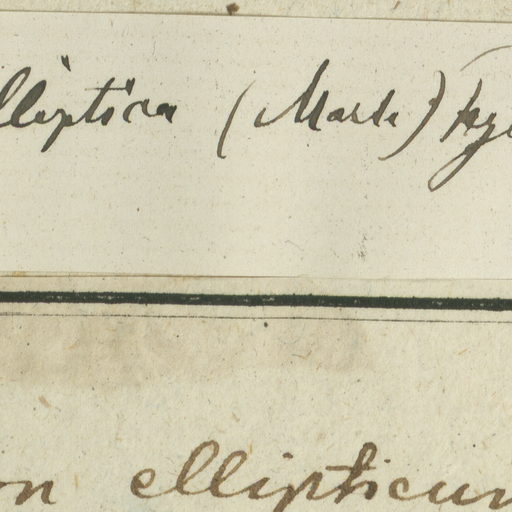 elliptica (Mart.)
on ellipticum